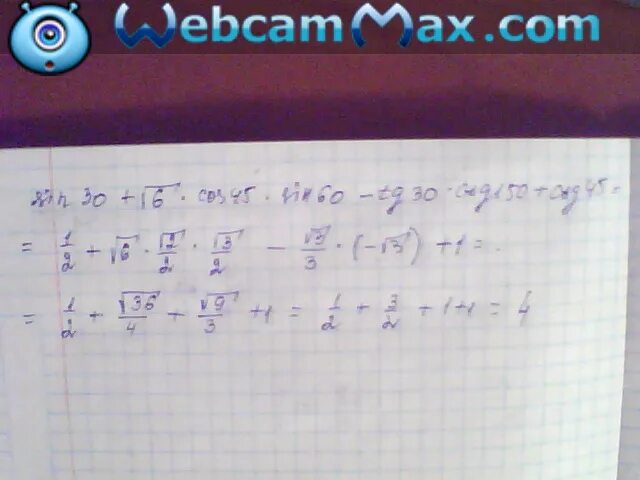 WebcamMax.com
sin 30 + √6 · cos 45 · sin 60 - tg 30 · ctg 150 + ctg 45 =
= 1/2 + √6 · √2/2 · √3/2 - √3/3 · (-√3) + 1 =
= 1/2 + √36/4 + √9/3 + 1 = 1/2 + 3/2 + 1 + 1 = 4